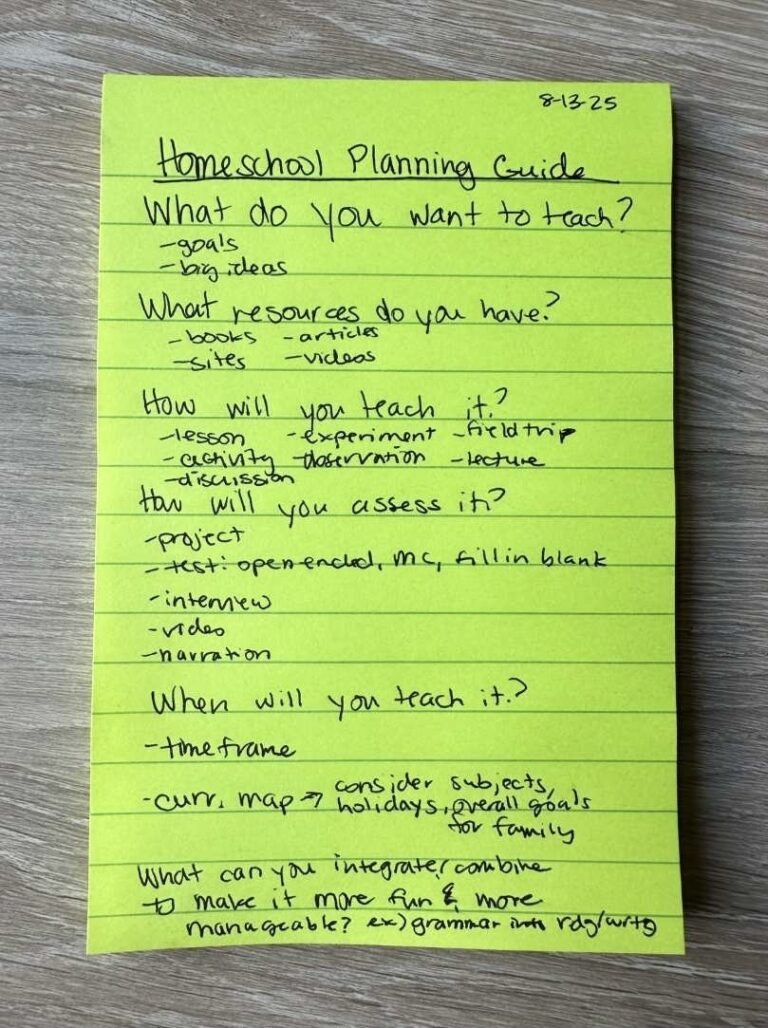 8-13-25
Homeschool Planning Guide
What do you want to teach?
-goals
-big ideas
What resources do you have?
-books -articles
-sites -videos
How will you teach it?
-lesson -experiment -field trip
-activity -observation -lecture
-discussion
How will you assess it?
-project
-test: open ended, MC, fill in blank
-interview
-video
-narration
When will you teach it?
-timeframe
-curr. map → consider subjects,
holidays, overall goals
for family
What can you integrate/combine
to make it more fun & more
manageable? ex) grammar into rdg/wrtg